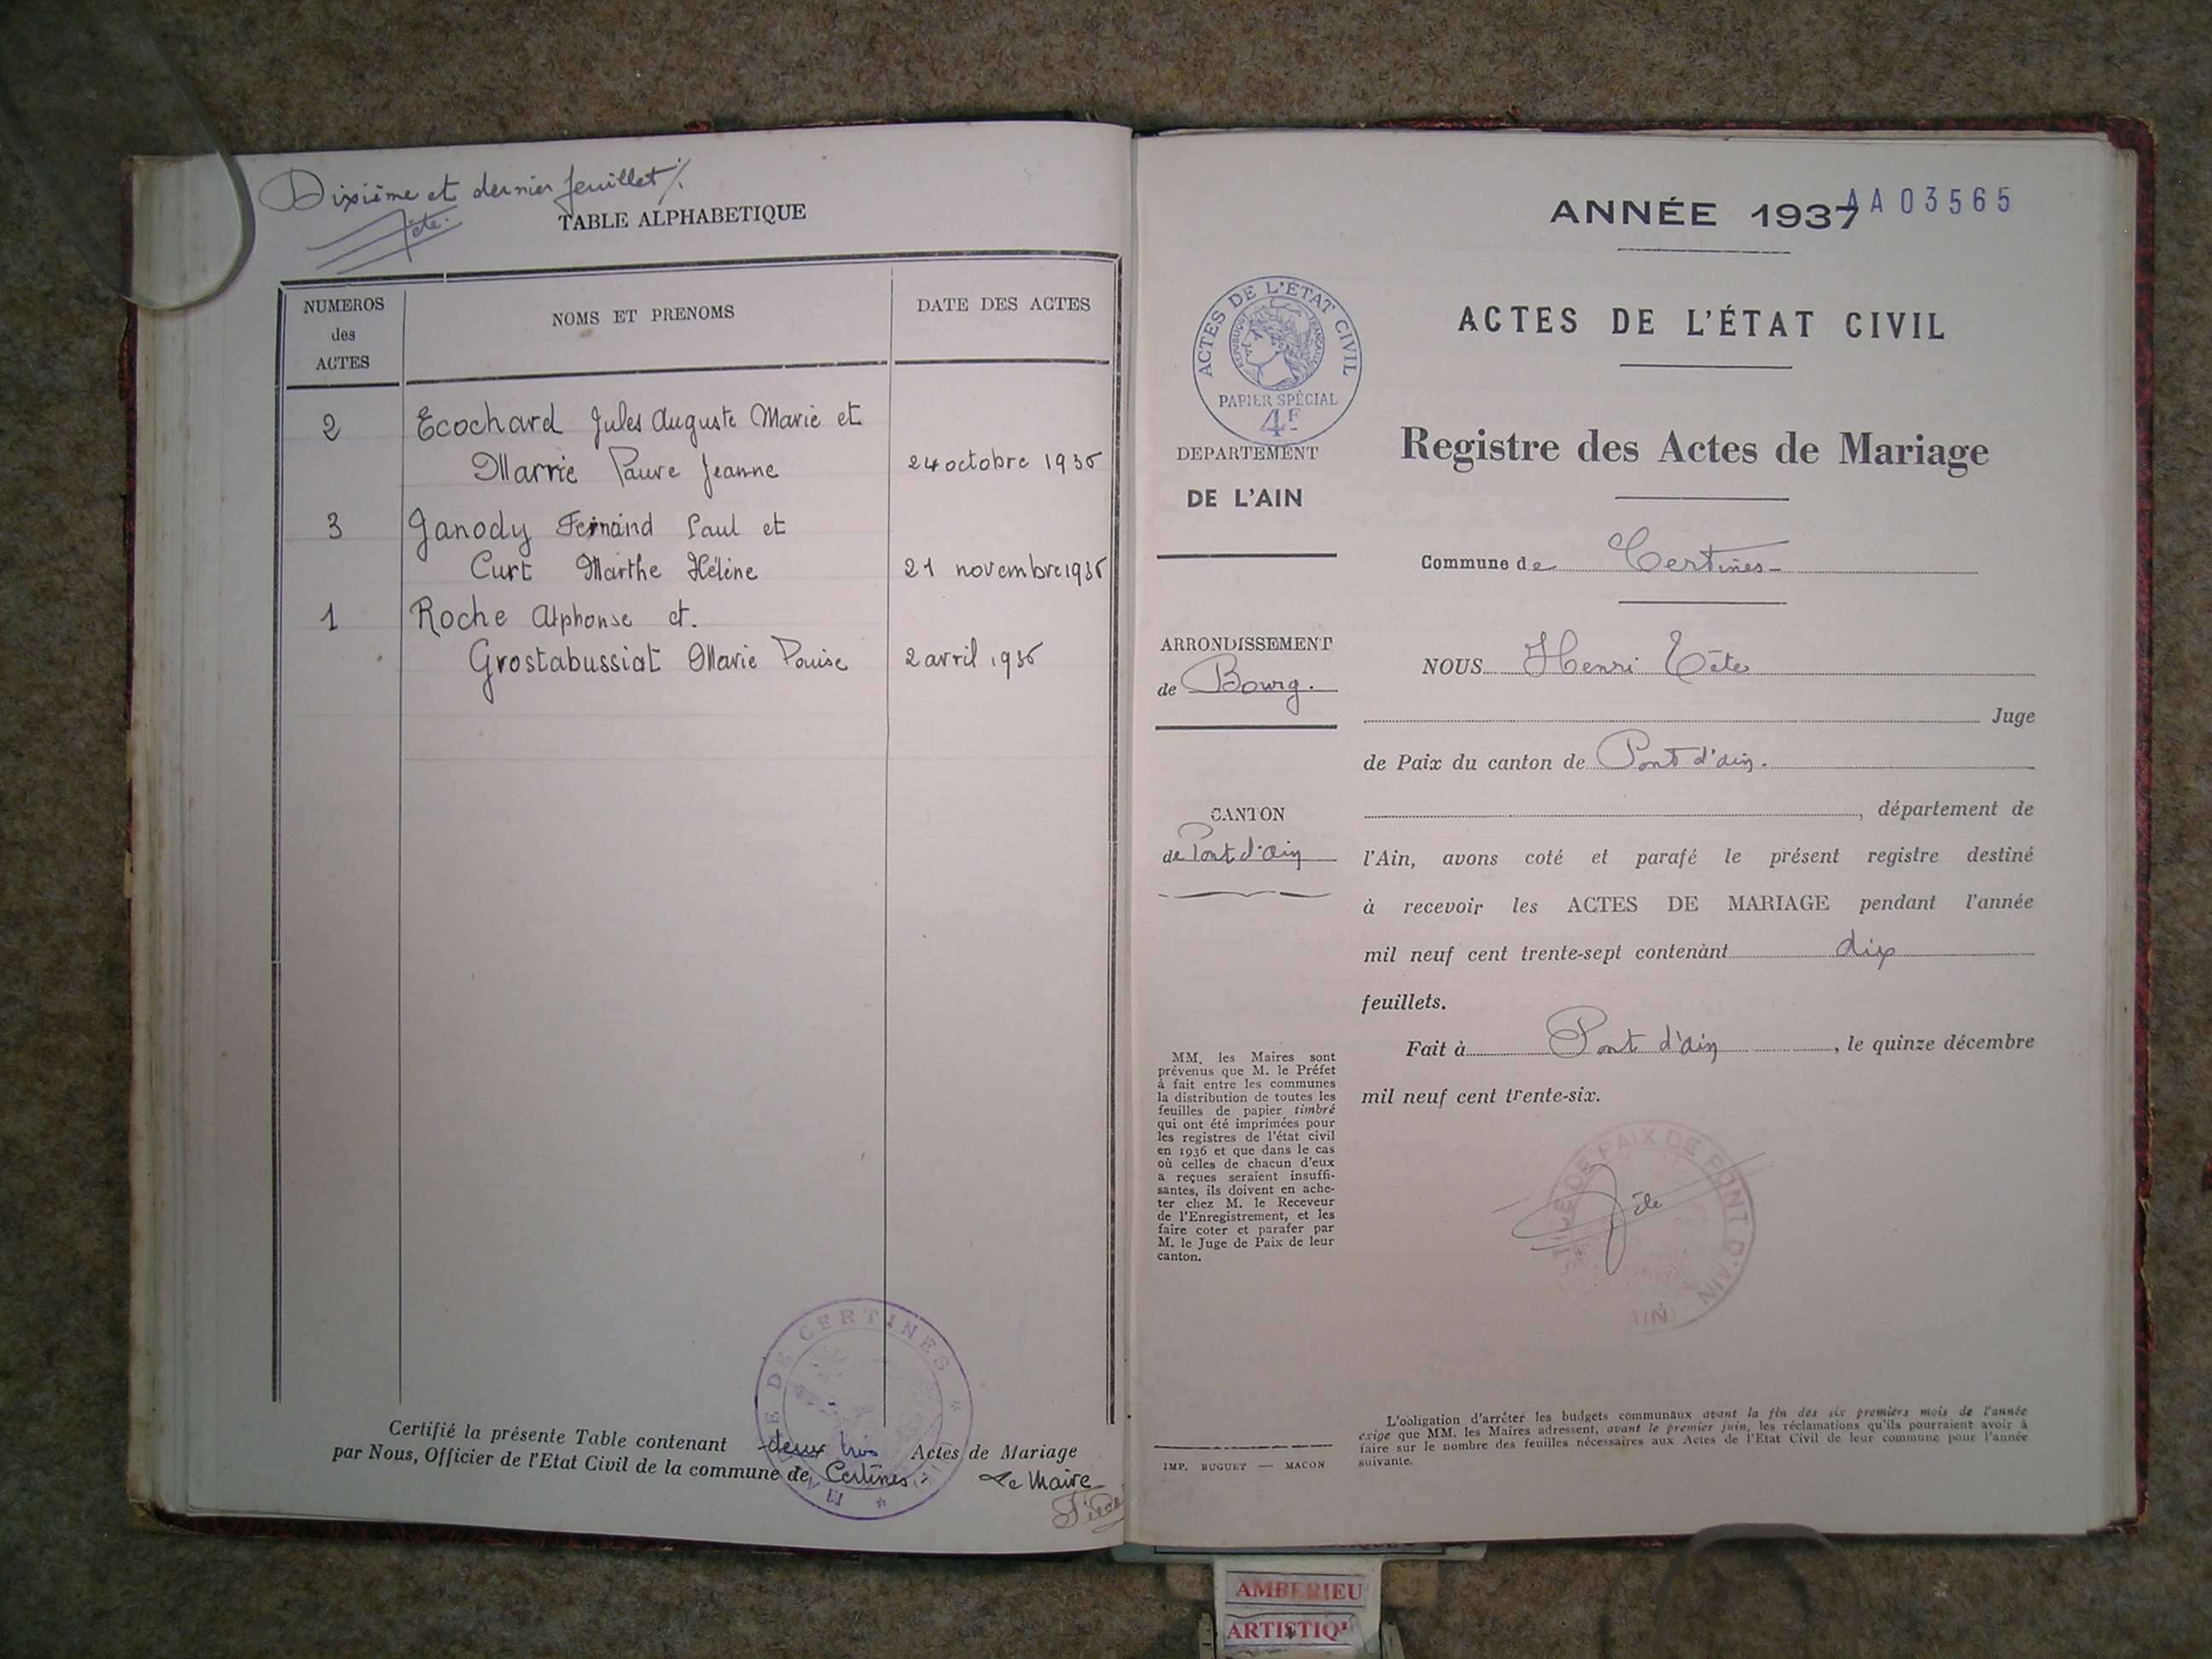 Dixième et dernier feuillet /.
Tête.
TABLE ALPHABETIQUE
NUMEROS
des
ACTES
NOMS ET PRENOMS
DATE DES ACTES
2 Ecochard Jules Auguste Marie et
Marrie Laure Jeanne 24 octobre 1936
3 Janody Fernand Paul et
Curt Marthe Hélène 21 novembre 1936
1 Roche Alphonse et.
Grostabussiat Marie Louise 2 avril 1936
Certifié la présente Table contenant deux trois Actes de Mariage
par Nous, Officier de l'Etat Civil de la commune de Certines.
Le Maire
DE CERTINES
ANNÉE 1937
AA03565
ACTES DE L'ÉTAT CIVIL
Registre des Actes de Mariage
ACTES DE L'ÉTAT CIVIL
RÉPUBLIQUE FRANÇAISE
PAPIER SPÉCIAL
4F
DEPARTEMENT
DE L'AIN
Commune de Certines
ARRONDISSEMENT
de Bourg.
CANTON
de Pont d'Ain
NOUS Henri Tête
Juge
de Paix du canton de Pont d'Ain.
, département de
l'Ain, avons coté et parafé le présent registre destiné
à recevoir les ACTES DE MARIAGE pendant l'année
mil neuf cent trente-sept contenant dix
feuillets.
Fait à Pont d'Ain, le quinze décembre
mil neuf cent trente-six.
DE PAIX DE PONT D'AIN
(AIN)
Tête
MM. les Maires sont
prévenus que M. le Préfet
à fait entre les communes
la distribution de toutes les
feuilles de papier timbré
qui ont été imprimées pour
les registres de l'état civil
en 1936 et que dans le cas
où celles de chacun d'eux
a reçues seraient insuffi-
santes, ils doivent en ache-
ter chez M. le Receveur
de l'Enregistrement, et les
faire coter et parafer par
M. le Juge de Paix de leur
canton.
IMP. BUGUET — MACON
L'obligation d'arrêter les budgets communaux avant la fin des six premiers mois de l'année
exige que MM. les Maires adressent, avant le premier juin, les réclamations qu'ils pourraient avoir à
faire sur le nombre des feuilles nécessaires aux Actes de l'Etat Civil de leur commune pour l'année
suivante.
AMBERIEU
ARTISTIQ